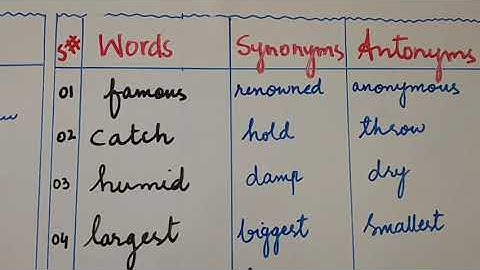 S# Words Synonyms Antonyms
01 famous renowned anonymous
02 catch hold throw
03 humid damp dry
04 largest biggest smallest